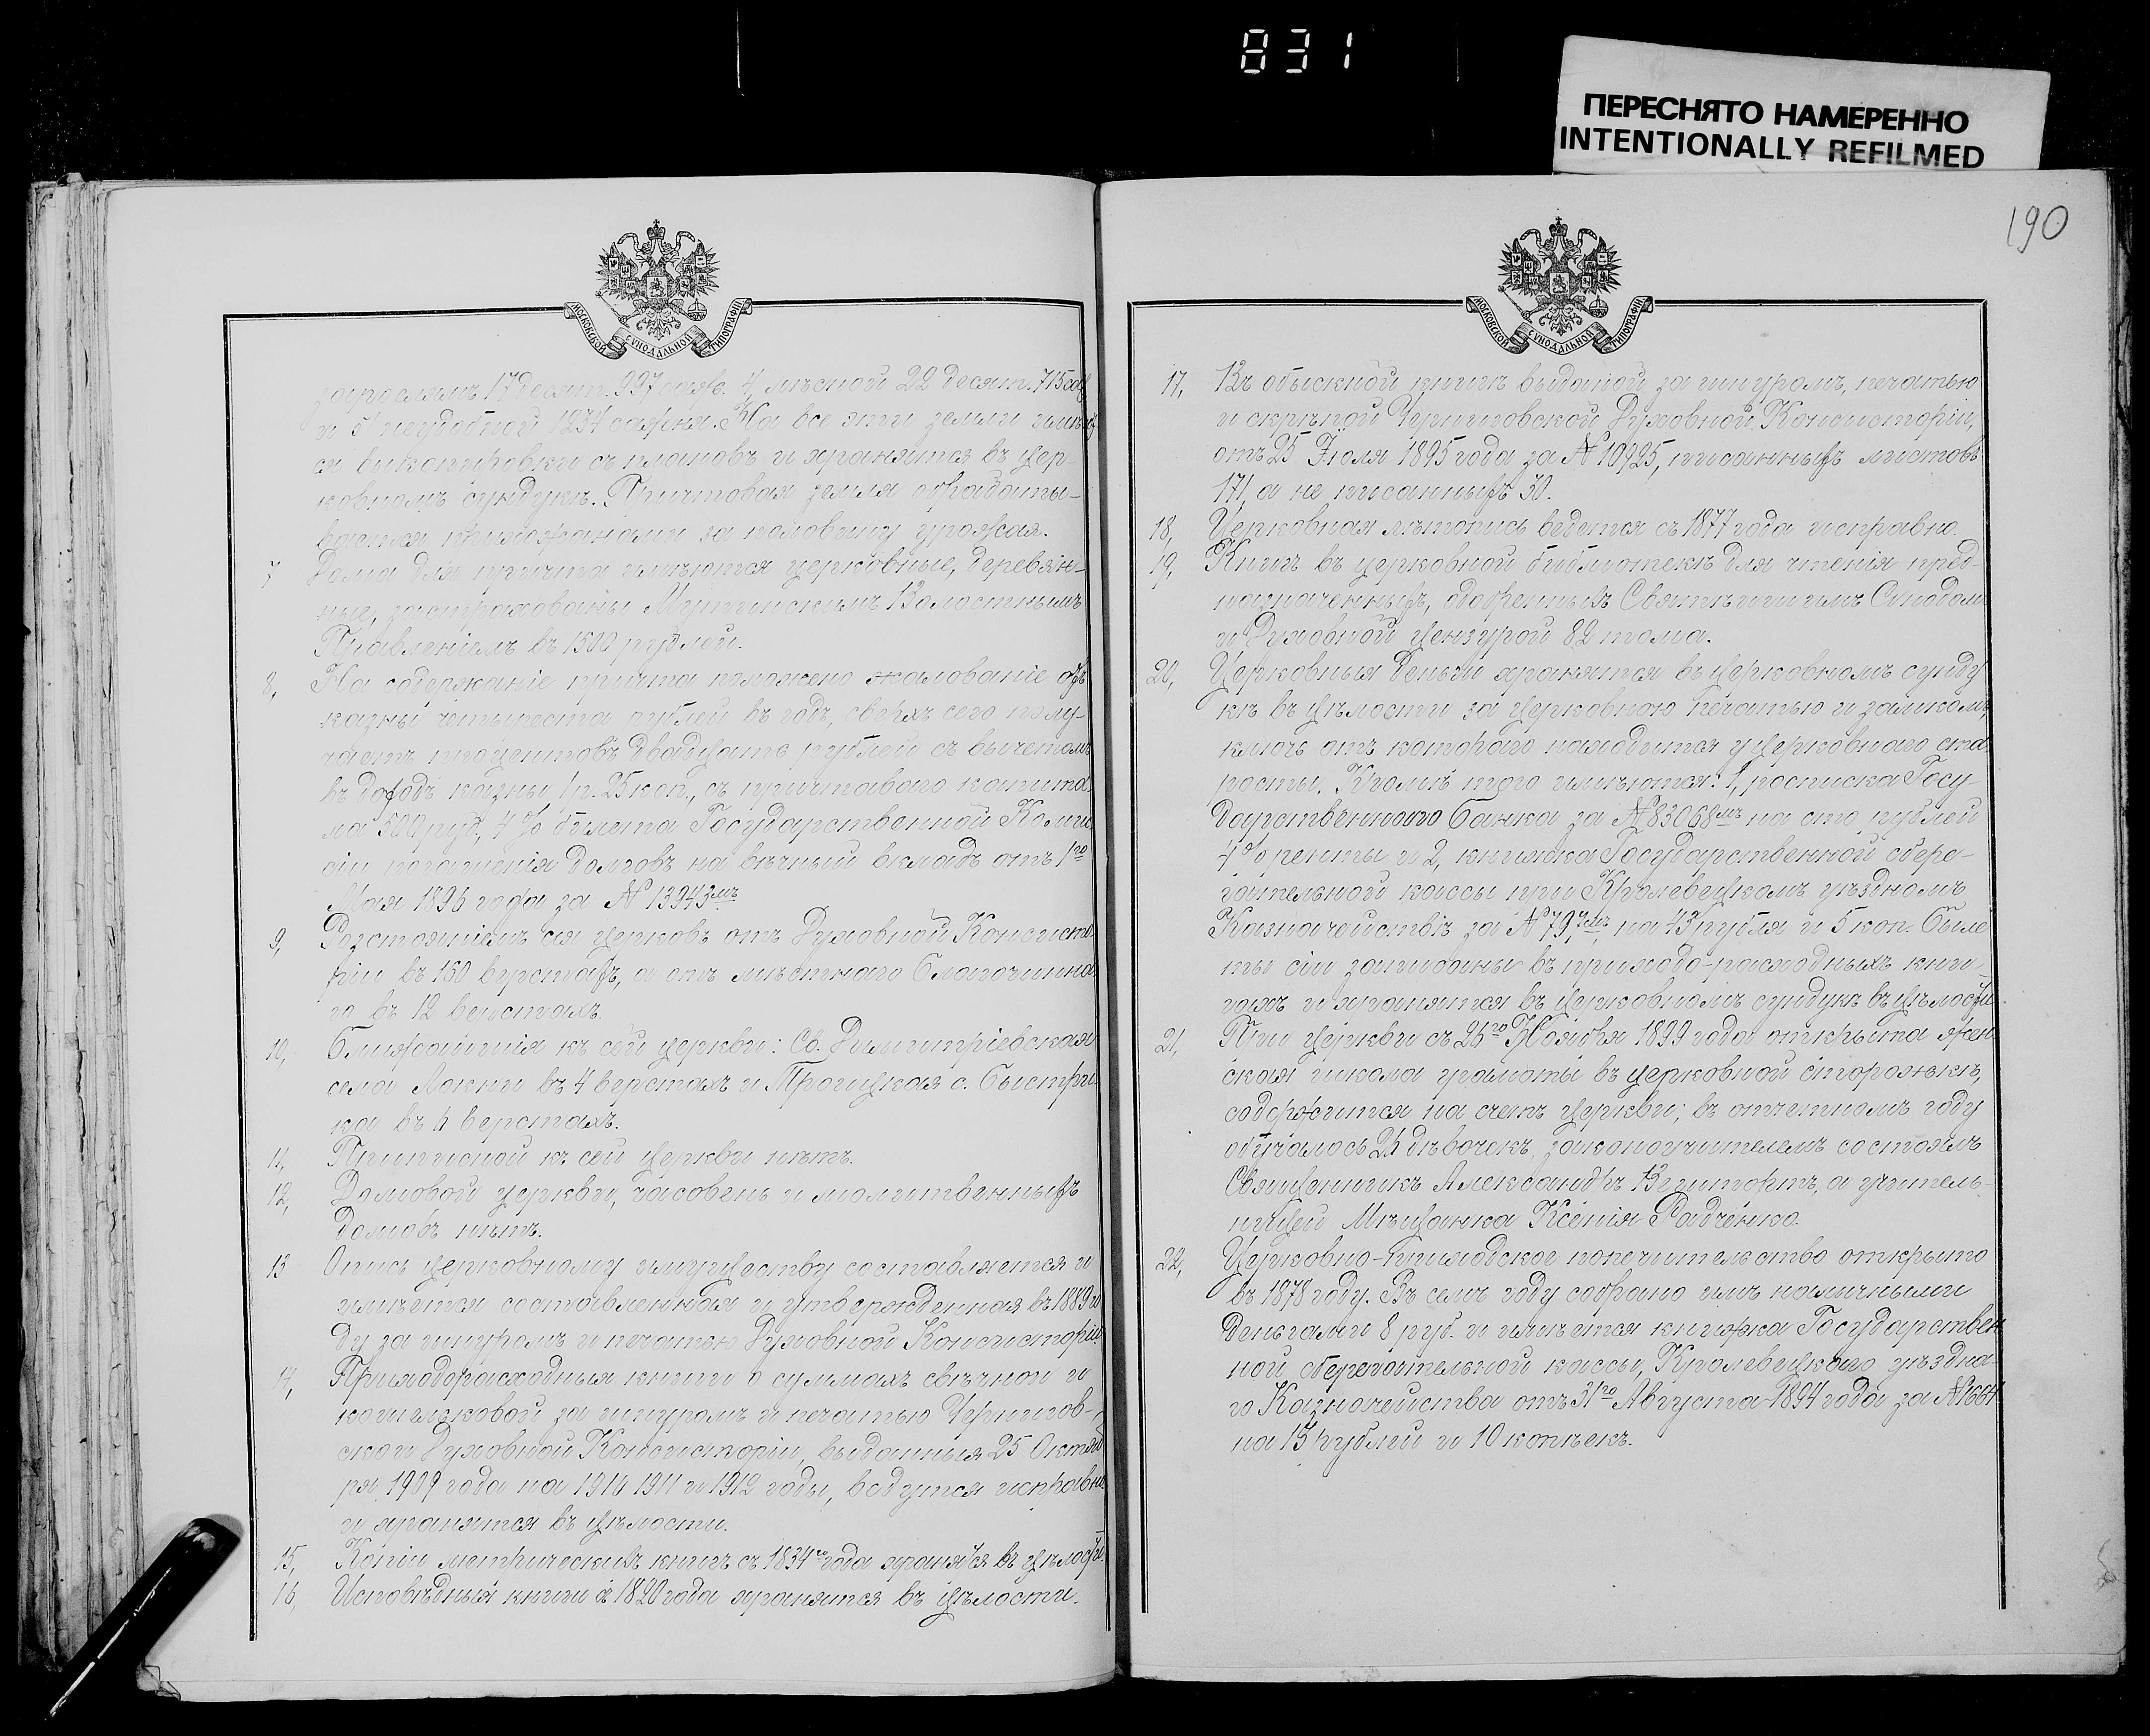 831
ПЕРЕСНЯТО НАМЕРЕННО
INTENTIONALLY REFILMED
190
МОСКОВСКОЙ СѴНОДАЛЬНОЙ ТИПОГРАФІИ
зарослямъ 17 десят. 997 саж. 4, лѣсной 22 десят. 715 саж
и 5 неудобной 1234 сажня. На все эти земли имѣют
ся выкопировки съ плановъ и хранятся въ цер-
ковномъ сундукѣ. Причтовая земля обрабаты-
вается прихожанами за половину урожая.
7 Дома для причта имѣются церковные, деревян-
ные, застрахованы Волостнымъ
Правленіемъ въ 1500 рублей.
8, На содержаніе причта положено жалованіе отъ
казны четыреста рублей въ годъ, сверхъ сего полу-
чаетъ процентовъ двадцать рублей съ вычетомъ
въ доходъ казны 1 р. 25 коп., съ причтоваго капита
ла 500 руб, 4% билета Государственной Комми
сіи погашенія долговъ на вѣчный вкладъ отъ 1го
Мая 1896 года за № 13943мъ
9, Разстояніемъ сія церковь отъ Духовной Консисто
ріи въ 160 верстахъ, а отъ мѣстнаго благочинна
го въ 12 верстахъ.
10, Ближайшія къ сей церкви: Св. Димитріевская
села Локни въ 4 верстахъ и Троицкая с. Быстри
ка въ 4 верстахъ.
11, Приписной къ сей церкви нѣтъ.
12, Домовой церкви, часовень и молитвенныхъ
домовъ нѣтъ.
13 Опись церковному имуществу составляется и
имѣется составленная и утвержденная въ 1889 го
ду за шнуромъ и печатью Духовной Консисторіи.
14, Приходорасходныя книги о суммахъ свѣчной и
кошельковой за шнуромъ и печатью Чернигов-
ской Духовной Консисторіи, выданныя 25 Октяб
ря 1909 года на 1910 1911 и 1912 годы, ведутся исправно
и хранятся въ цѣлости.
15, Копіи метрическихъ книгъ съ 1834го года хранятся въ цѣлости.
16, Исповѣдныя книги съ 1820 года хранятся въ цѣлости.
МОСКОВСКОЙ СѴНОДАЛЬНОЙ ТИПОГРАФІИ
17, Въ обыскной книгѣ выданой за шнуромъ, печатью
и скрѣпой Черниговской Духовной Консисторіи,
отъ 25 Іюля 1895 года за № 10925, писанныхъ листовъ
171, а не писанныхъ 30.
18, Церковная лѣтопись ведется съ 1877 года исправно.
19, Книгъ въ церковной библіотекѣ для чтенія пред-
назначенныхъ, одобренныхъ Святѣйшимъ Синодом
и Духовной цензурой 82 тома.
20, Церковныя деньги хранятся въ церковномъ сунду
кѣ въ цѣлости за церковною печатью и замкомъ,
ключъ отъ котораго находится у церковнаго ста
росты. Кромѣ того имѣются: 1, росписка Госу-
дарственнаго банка за № 83068мъ на сто рублей
4% ренты и 2, книжка Государственной сбере-
гательной кассы при Кролевецкомъ уѣздномъ
Казначействѣ за № 79, на 43 рубля и 5 коп. Биле
ты сіи записаны въ приходо-расходныхъ кни-
гахъ и хранятся въ церковномъ сундукѣ въ цѣлости.
21, При церкви съ 26го Ноября 1899 года открыта жен
ская школа грамоты въ церковной сторожкѣ,
содержится на счетъ церкви; въ отчетномъ году
обучалось 24 дѣвочекъ, законоучителемъ состоялъ
Священникъ Александръ а учитель-
ницей Мѣщанка Ксенія Радченко.
22, Церковно-Приходское попечительство открыто
въ 1878 году. Въ семъ году собрано имъ наличными
деньгами 8 руб. и имѣется книжка Государствен
ной сберегательной кассы, Кролевецкаго уѣздна-
го Казначейства отъ 31го Августа 1894 года за № 1664
на 15 рублей и 10 копѣекъ.